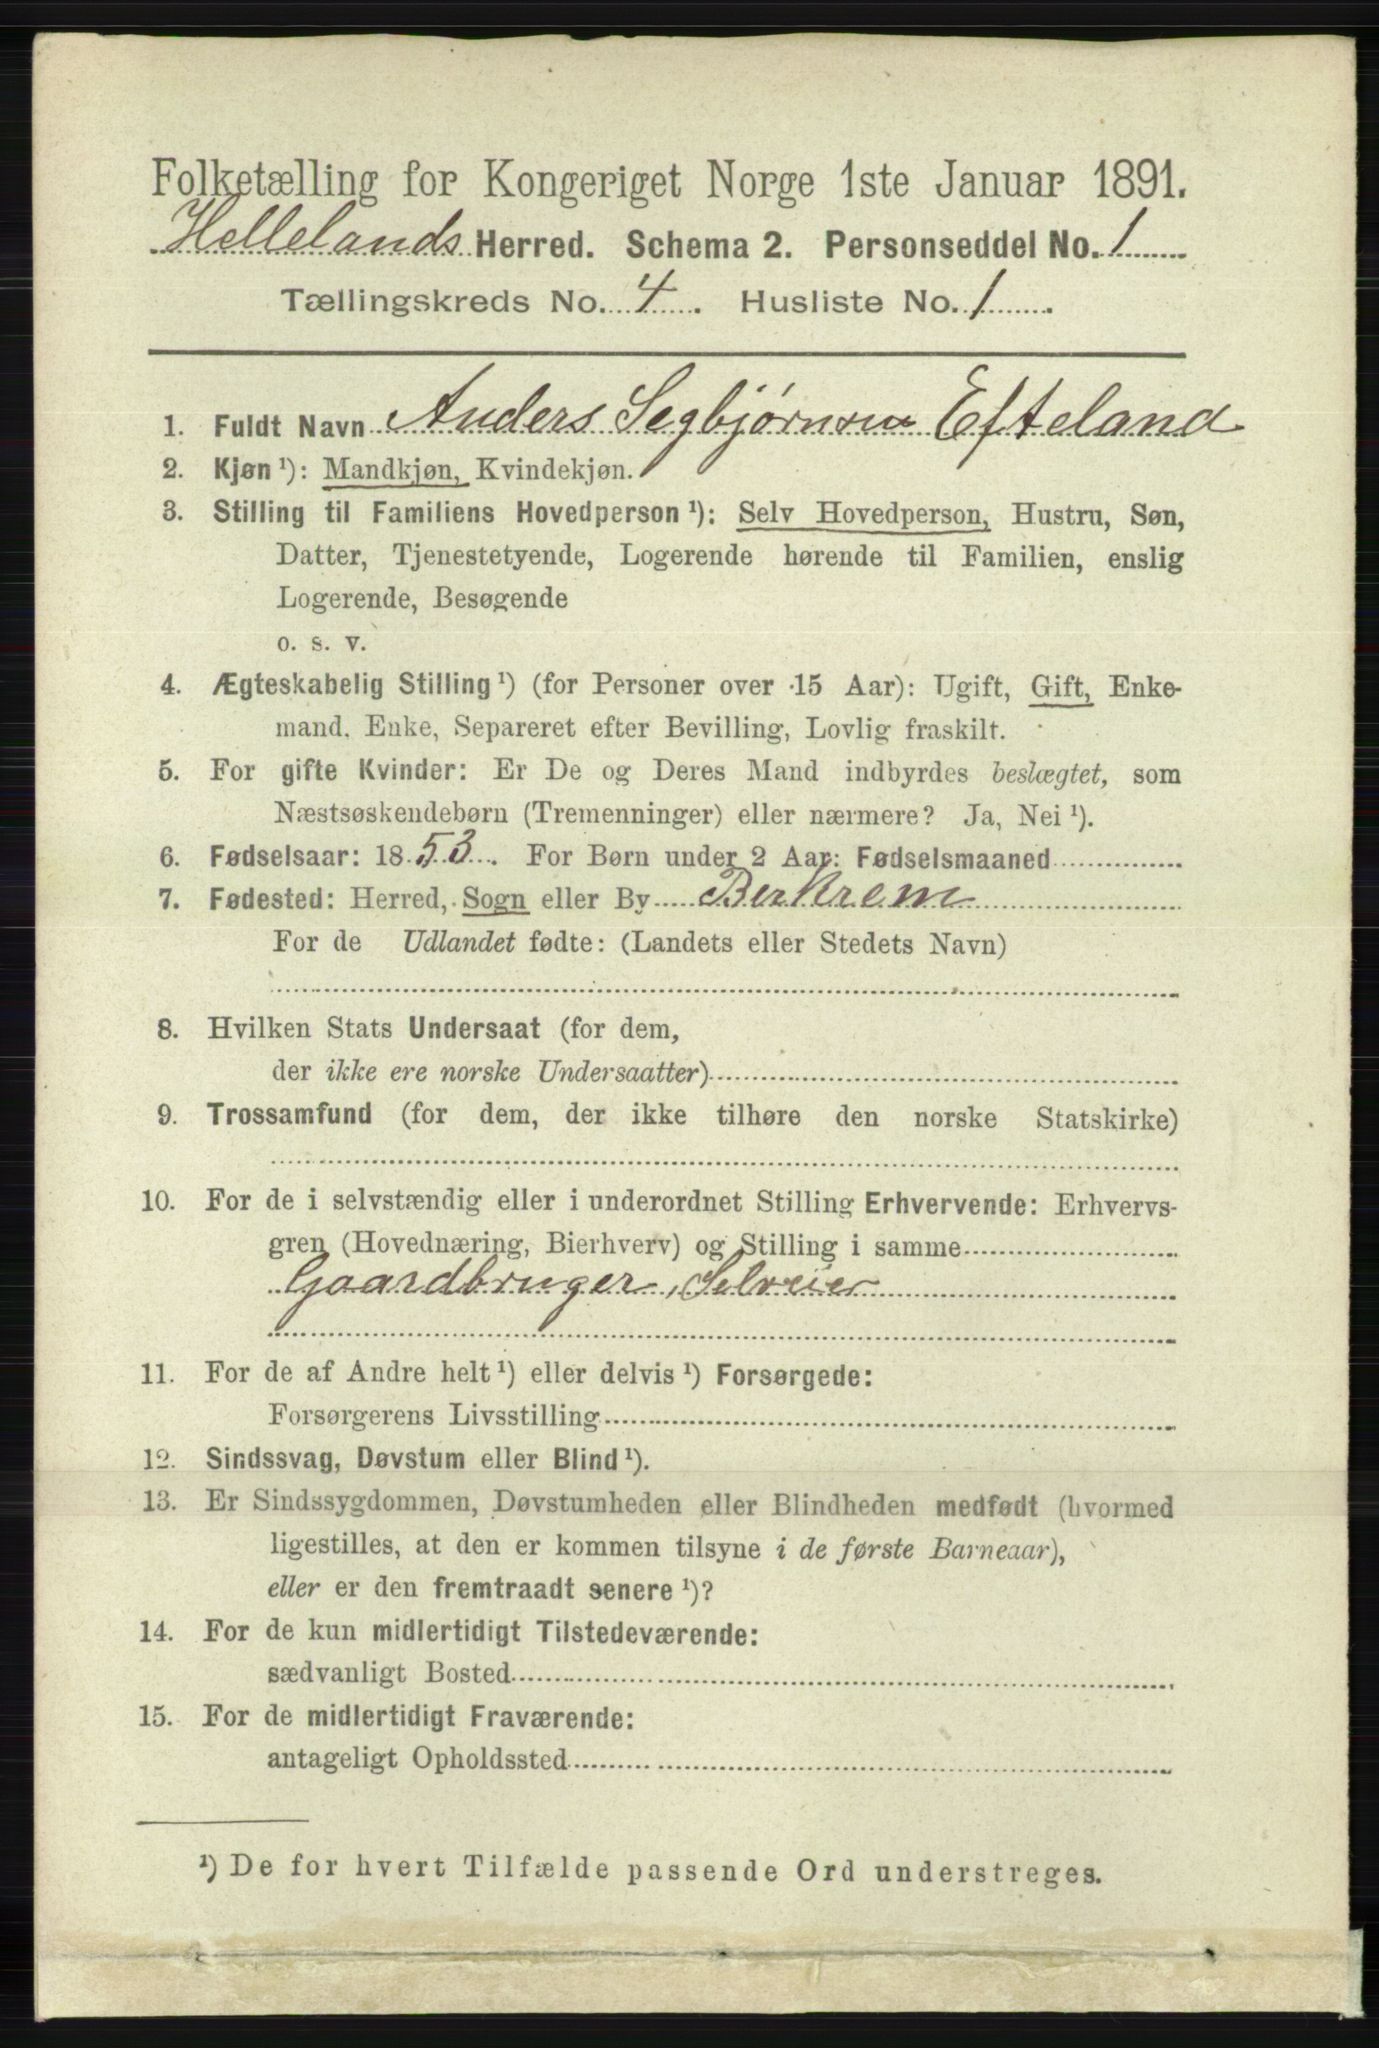 Folketælling for Kongeriget Norge 1ste Januar 1891.
Hellelands Herred. Schema 2. Personseddel No. 1
Tællingskreds No. 4. Husliste No. 1.
1. Fuldt Navn Anders Segbjørnsen Efteland
2. Kjøn ¹): Mandkjøn, Kvindekjøn.
3. Stilling til Familiens Hovedperson ¹): Selv Hovedperson, Hustru, Søn,
Datter, Tjenestetyende, Logerende hørende til Familien, enslig
Logerende, Besøgende
o. s. v.
4. Ægteskabelig Stilling ¹) (for Personer over 15 Aar): Ugift, Gift, Enke-
mand, Enke, Separeret efter Bevilling, Lovlig fraskilt.
5. For gifte Kvinder: Er De og Deres Mand indbyrdes beslægtet, som
Næstsøskendebørn (Tremenninger) eller nærmere? Ja, Nei ¹).
6. Fødselsaar: 1853. For Børn under 2 Aar: Fødselsmaaned
7. Fødested: Herred, Sogn eller By Berkrem
For de Udlandet fødte: (Landets eller Stedets Navn)
8. Hvilken Stats Undersaat (for dem,
der ikke ere norske Undersaatter)
9. Trossamfund (for dem, der ikke tilhøre den norske Statskirke)
10. For de i selvstændig eller i underordnet Stilling Erhvervende: Erhvervs-
gren (Hovednæring, Bierhverv) og Stilling i samme
Gaardbruger, Selveier
11. For de af Andre helt ¹) eller delvis ¹) Forsørgede:
Forsørgerens Livsstilling
12. Sindssvag, Døvstum eller Blind ¹).
13. Er Sindssygdommen, Døvstumheden eller Blindheden medfødt (hvormed
ligestilles, at den er kommen tilsyne i de første Barneaar),
eller er den fremtraadt senere ¹)?
14. For de kun midlertidigt Tilstedeværende:
sædvanligt Bosted
15. For de midlertidigt Fraværende:
antageligt Opholdssted
¹) De for hvert Tilfælde passende Ord understreges.